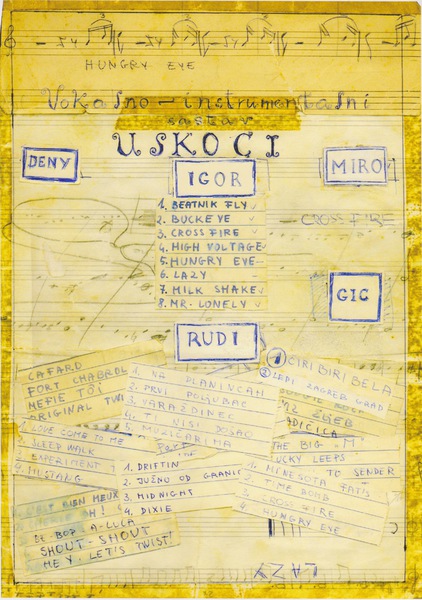 HUNGRY EYE
Vokalno - instrumentalni
sastav
USKOCI
DENY
IGOR
MIRO
1. BEATNIK FLY
2. BUCKEYE
3. CROSS FIRE
4. HIGH VOLTAGE
5. HUNGRY EYE
6. LAZY
7. MILK SHAKE
8. MR. LONELY
CROSS FIRE
GIC
RUDI
1 CIRI BIRI BELA
2 LEPI ZAGREB GRAD
CAFARD
FORT CHABROL
MEFIE TOI
ORIGINAL TWI
1. NA PLANINCAH
2. PRVI POLJUBAC
3. VARAŽDINEC
4. TI NISI DOŠAO
5. MUZIČARIMA
THE BIG "M"
LUCKY LEEPS
TO SENDER
1 LOVE COME TO ME
2 SLEEP WALK
3 EXPERIMENT
4 MUSTANG
1. DRIFTIN
2. JUŽNO OD GRANIC
3. MIDNIGHT
4. DIXIE
1. MINESOTA FATS
2. TIME BOMB
3. CROSS FIRE
4. HUNGRY EYE
BE BOP A-LULA
SHOUT - SHOUT
HEY. LET'S TWIST!
LAZY